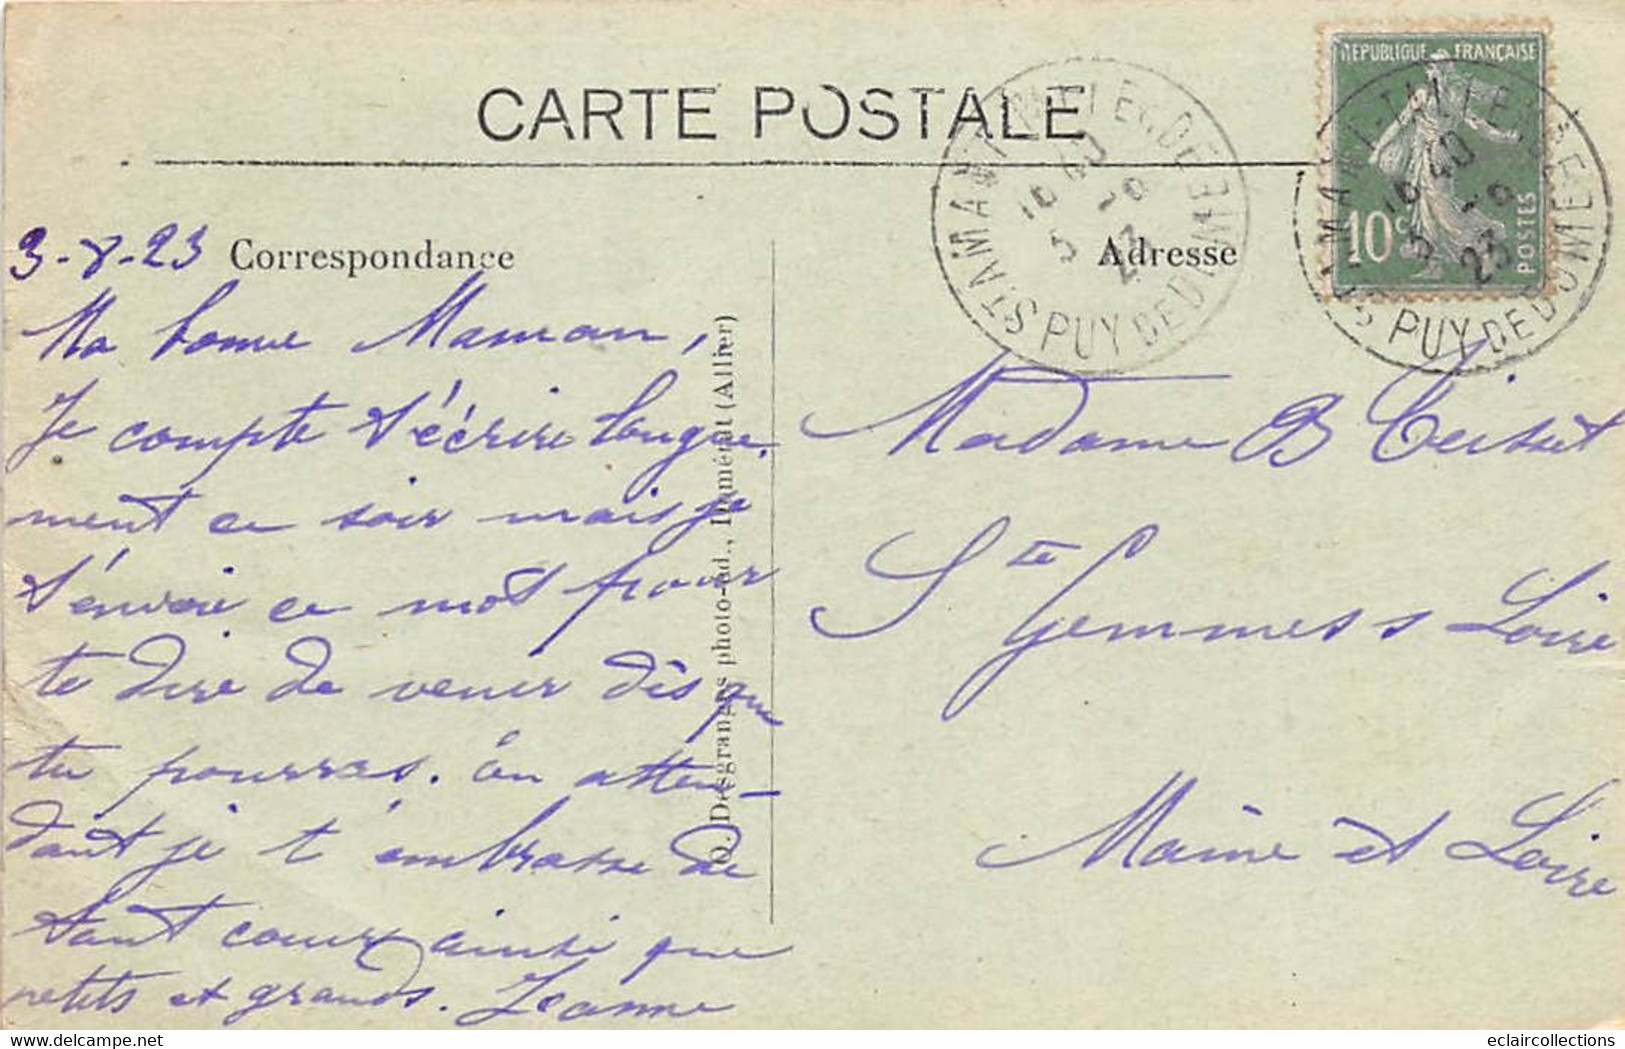 CARTE POSTALE
REPUBLIQUE FRANÇAISE
10c
POSTES
ST AMANT-TALLENDE
16 40
3 -8
23
PUY DE DOME
ST AMANT-TALLENDE
16 40
3 -8
23
PUY DE DOME
3-8-23
Correspondance
Adresse
Ma bonne Maman,
Je compte t'écrire longue
ment ce soir mais je
t'envoie ce mot pour
te dire de venir dès que
tu pourras. En atten-
dant je t'embrasse de
tout coeur ainsi que
petits et grands. Jeanne
O. Desgranges photo-éd., Diménat (Allier)
Madame B
Ste Gemmes s Loire
Maine et Loire
eclaircollections